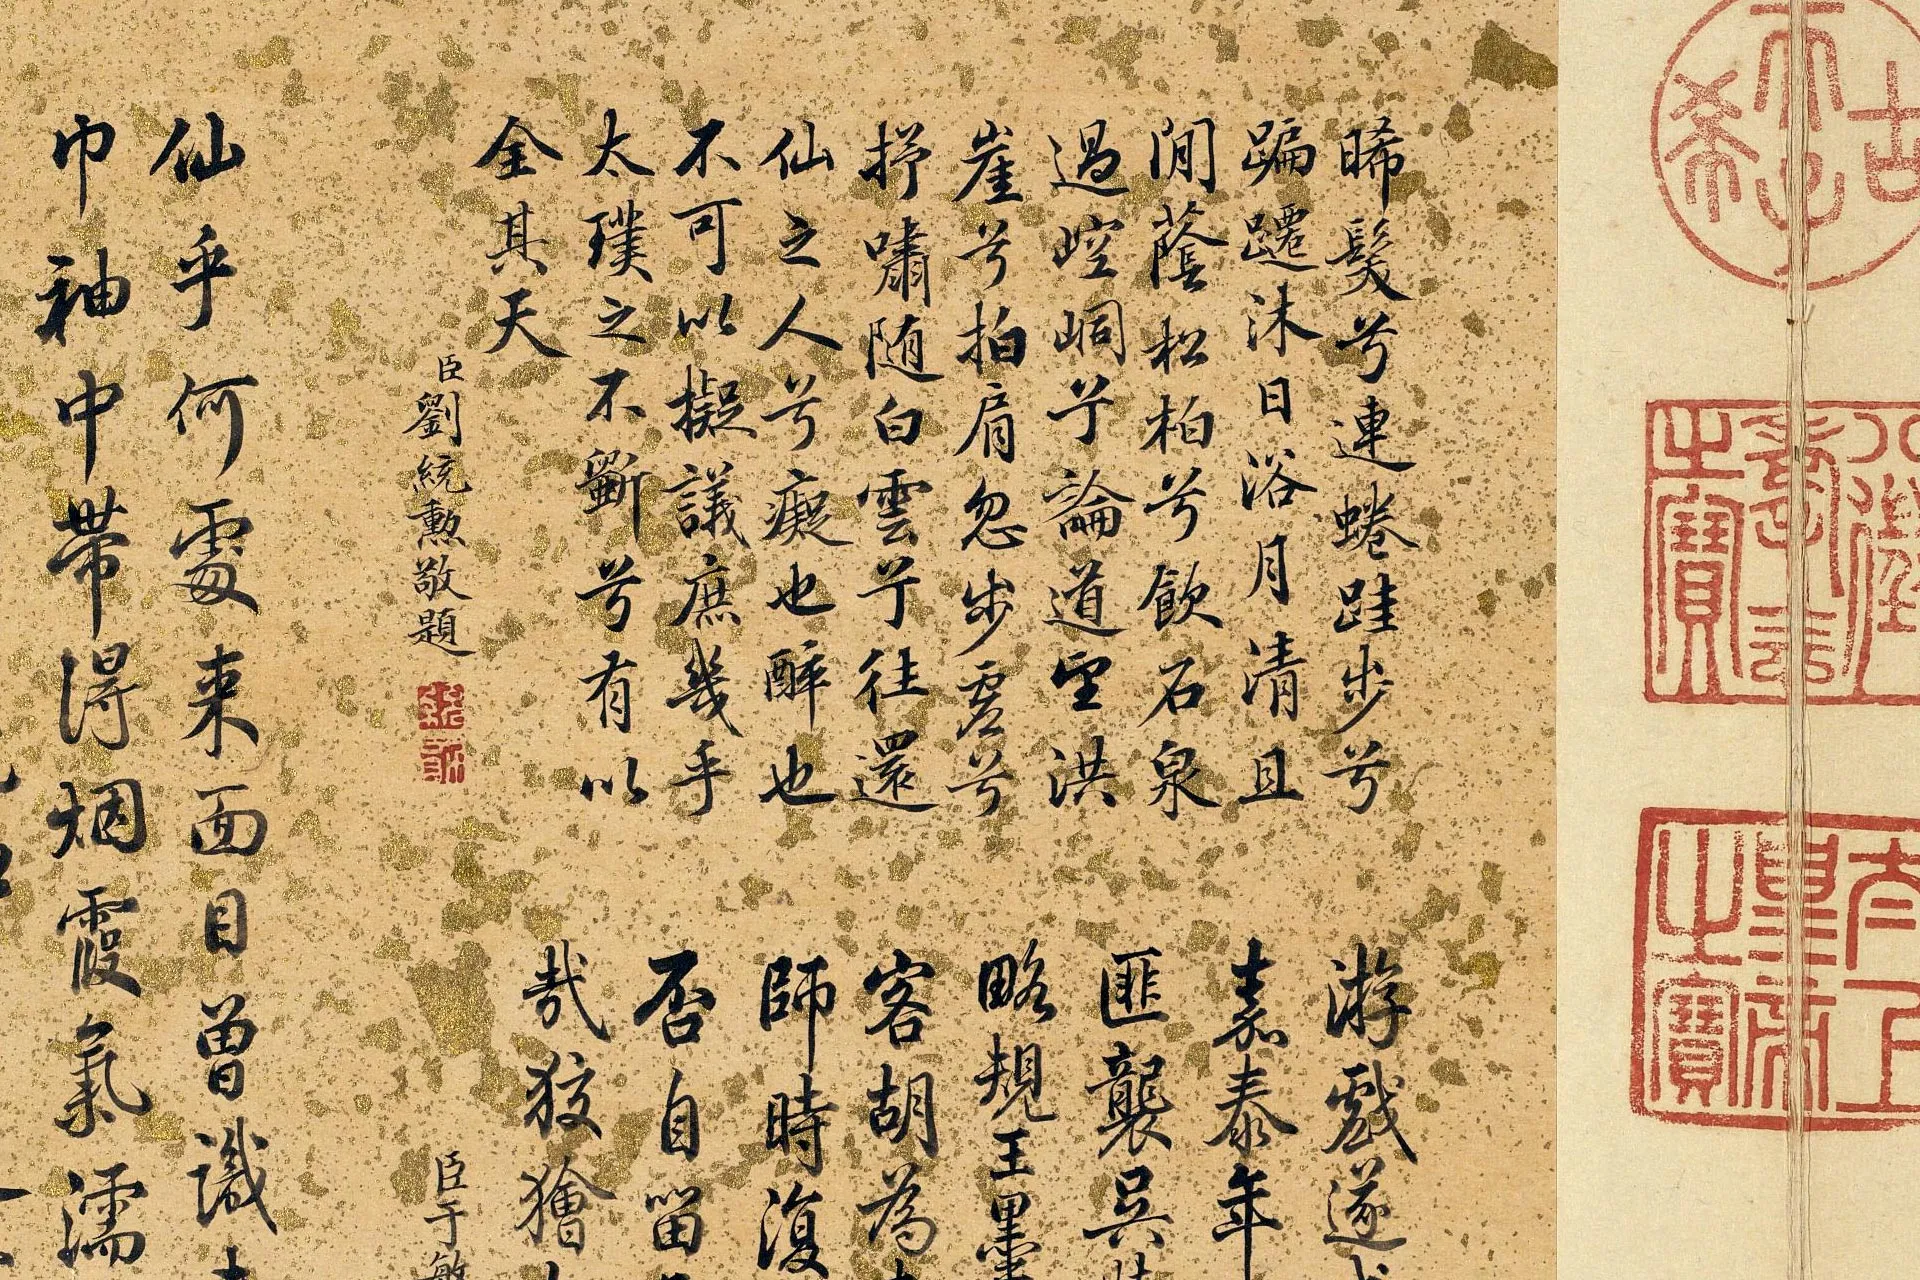 古希天子
八徵耄念之寶
太上皇帝之寶
晞髮兮連蜷跬步兮
蹁躚沬日浴月清且
閒蔭松柏兮飲石泉
過崆峒兮論道望洪
崖兮拍肩忽步虛兮
抒嘯随白雲兮往還
仙之人兮癡也醉也
不可以擬議庶幾乎
太璞之不斲兮有以
全其天
臣劉統勲敬題
游戲遂
嘉泰年
匪襲吳
略規王墨
客胡為
師時復
否自留
哉狡獪
臣于敏
仙乎何處来面目曽識
巾袖中帶得烟霞氣濡